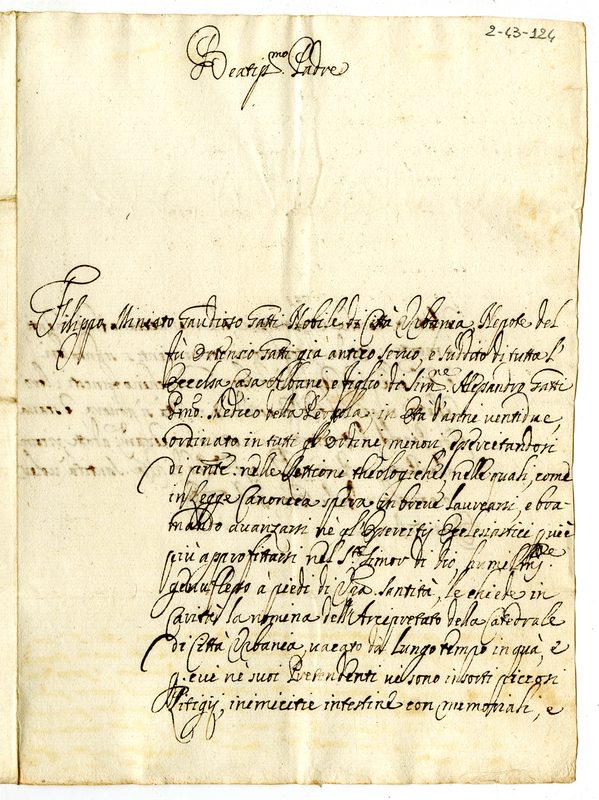 2-43-124
Beatiss.mo Padre
Filippo Minuto Gaudioso Gatti Nobile di Città Urbania, Nepote del
fù Ortenzo Gatti già antico servo, e suddito di tutta l'
Eccelsa Casa Albani, e figlio di Sim.ne Alesandro Gatti
Pmo. Medico della Pergola; in età d'anni ventidue,
ordinato in tutti gl'Ordini menori, esercitandosi
di pnte: nelle lettioni theologiche, nelle quali, come
in Legge Canonica spera in breve laurearsi, e bra-
mando avanzarsi nè gl'Esercitij Ecclesiastici, quì è
più approfittarsi nel S.to Timor di Dio, humilm.te
genuflesso à piedi di Vra. Santità, le chiede in
Carità la nomina dell'Arcipretato della Catedrale
di Città Urbania, vacato dà lungo tempo in quà, e
p. cui nè suoi Pretendenti vi sono insorti
Litigij, inimicitie intestine con memoriali, e